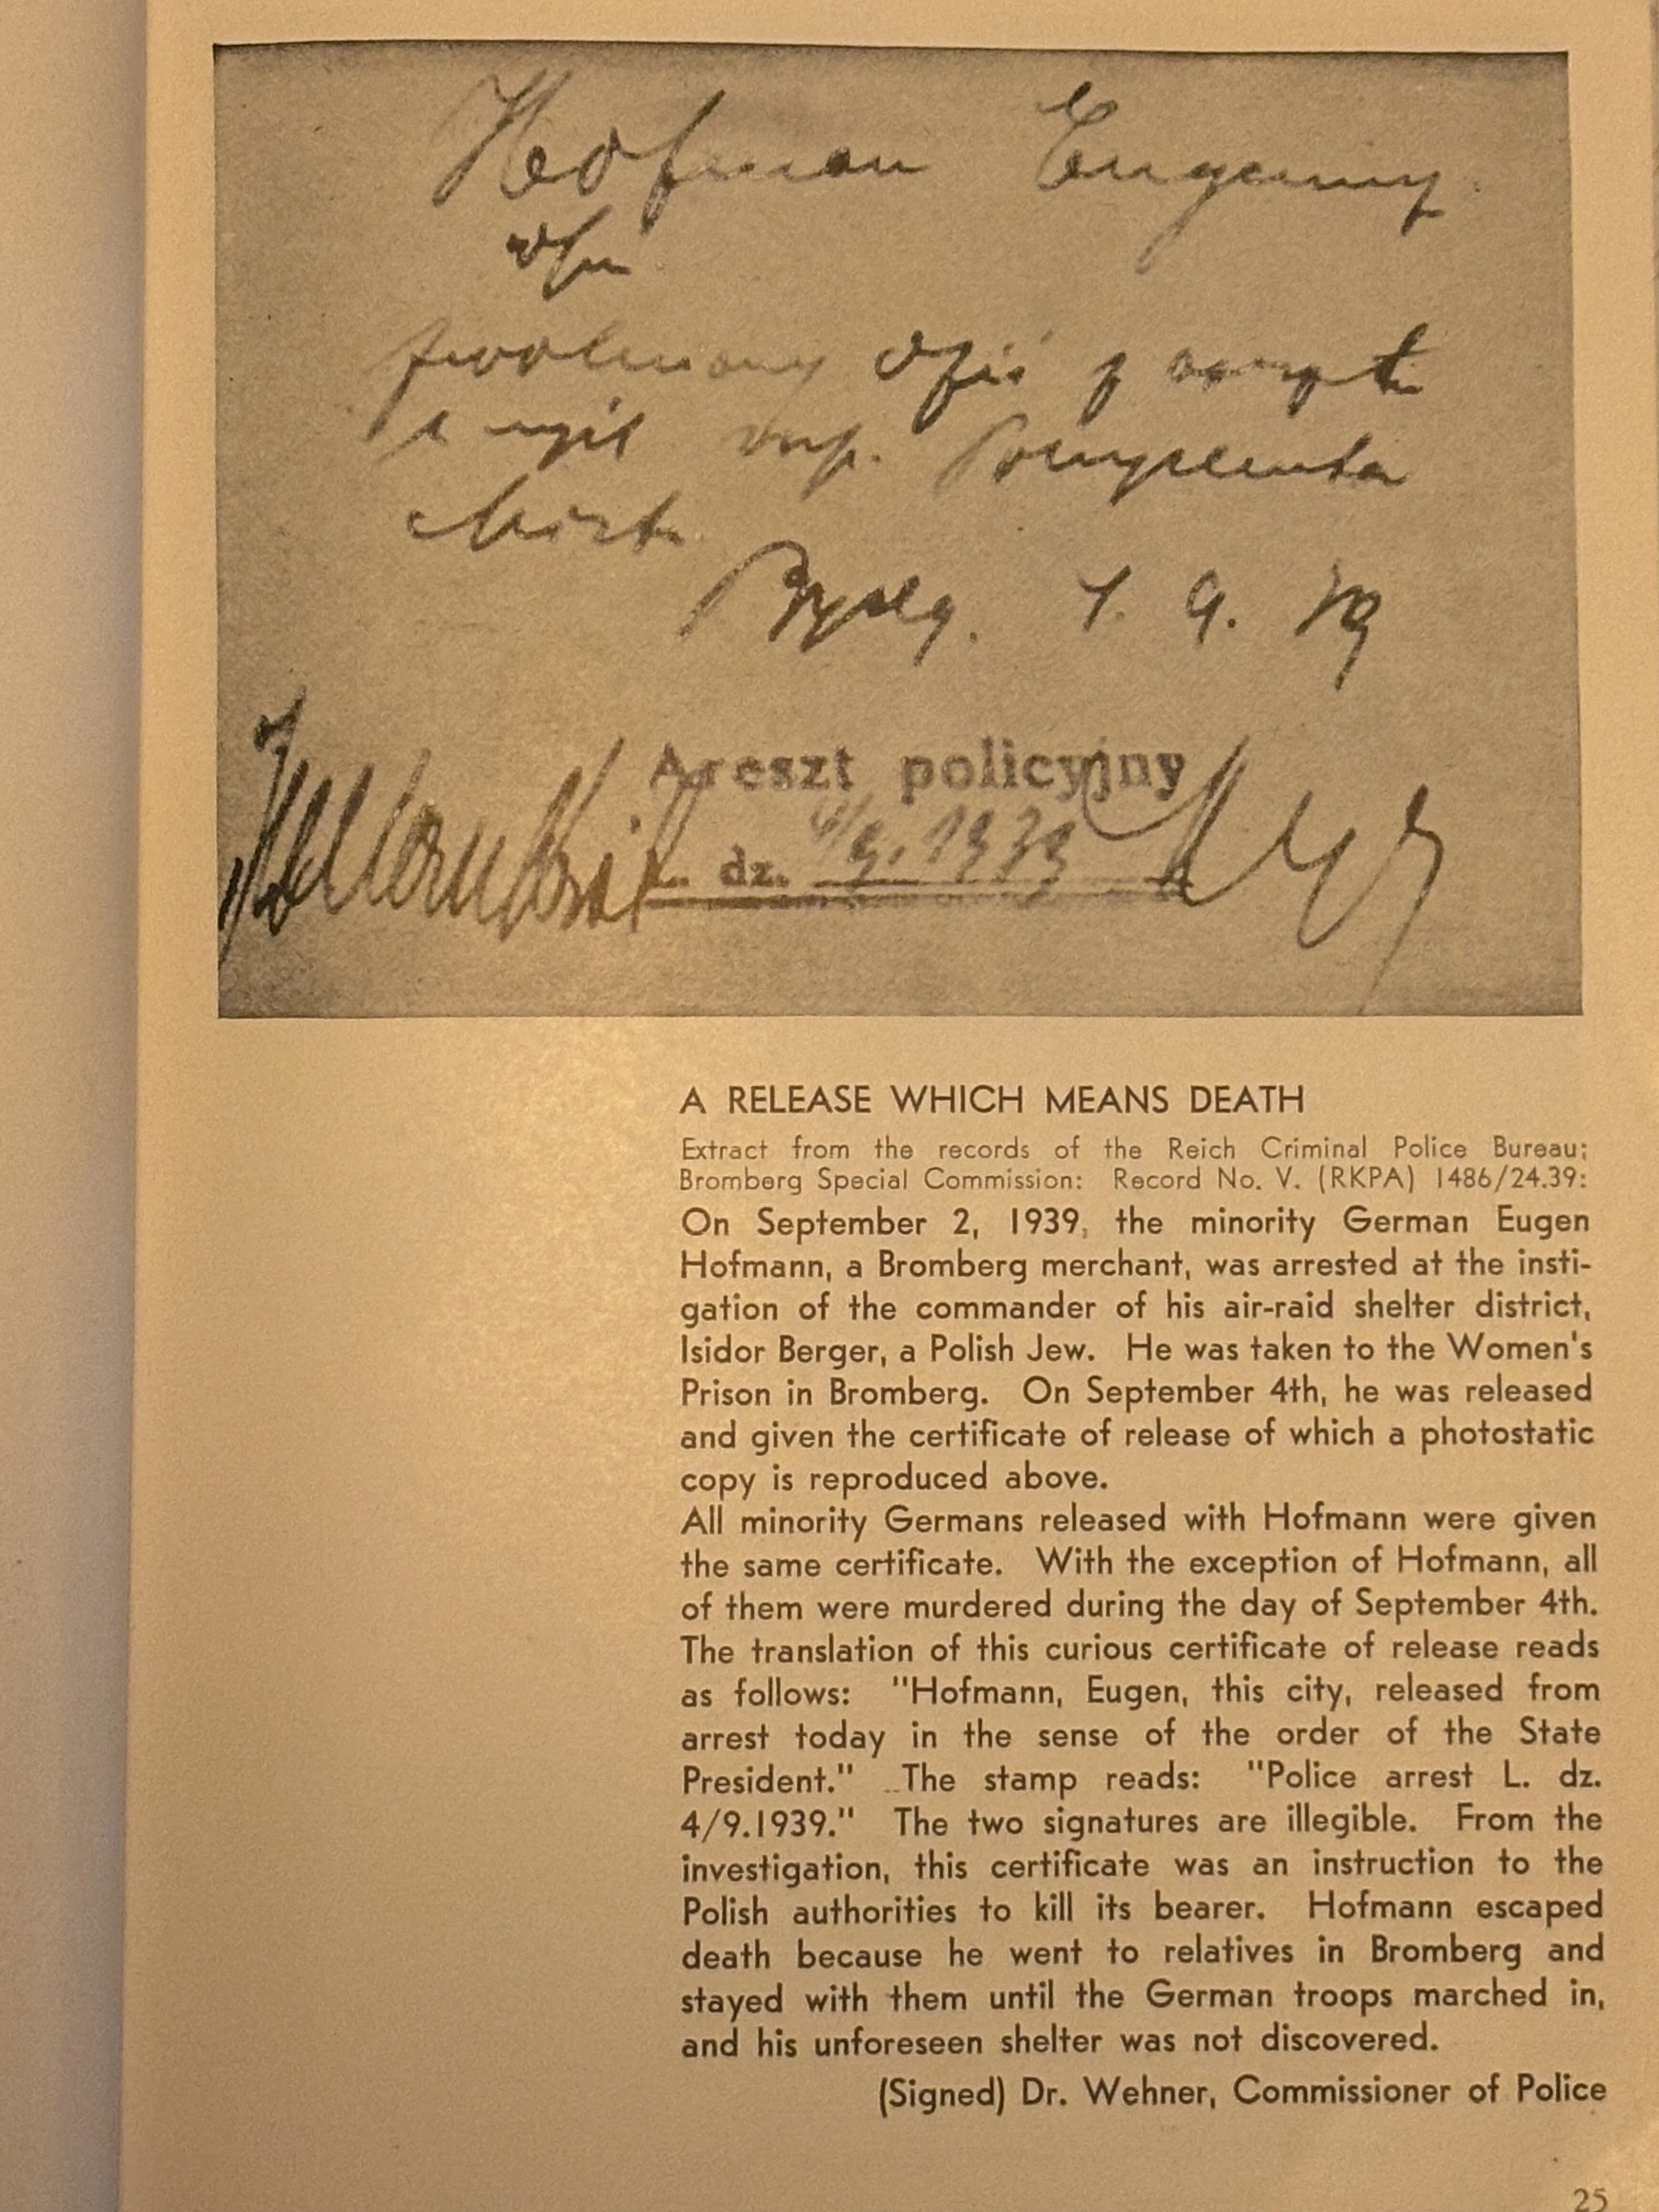 Hofman Eugeniusz
zwolniony dziś z aresztu
Bydg. 4. 9. 39
Areszt policyjny
L. dz. 4/9. 1939
A RELEASE WHICH MEANS DEATH
Extract from the records of the Reich Criminal Police Bureau;
Bromberg Special Commission: Record No. V. (RKPA) 1486/24.39:
On September 2, 1939, the minority German Eugen
Hofmann, a Bromberg merchant, was arrested at the insti-
gation of the commander of his air-raid shelter district,
Isidor Berger, a Polish Jew. He was taken to the Women's
Prison in Bromberg. On September 4th, he was released
and given the certificate of release of which a photostatic
copy is reproduced above.
All minority Germans released with Hofmann were given
the same certificate. With the exception of Hofmann, all
of them were murdered during the day of September 4th.
The translation of this curious certificate of release reads
as follows: "Hofmann, Eugen, this city, released from
arrest today in the sense of the order of the State
President." The stamp reads: "Police arrest L. dz.
4/9.1939." The two signatures are illegible. From the
investigation, this certificate was an instruction to the
Polish authorities to kill its bearer. Hofmann escaped
death because he went to relatives in Bromberg and
stayed with them until the German troops marched in,
and his unforeseen shelter was not discovered.
(Signed) Dr. Wehner, Commissioner of Police
25